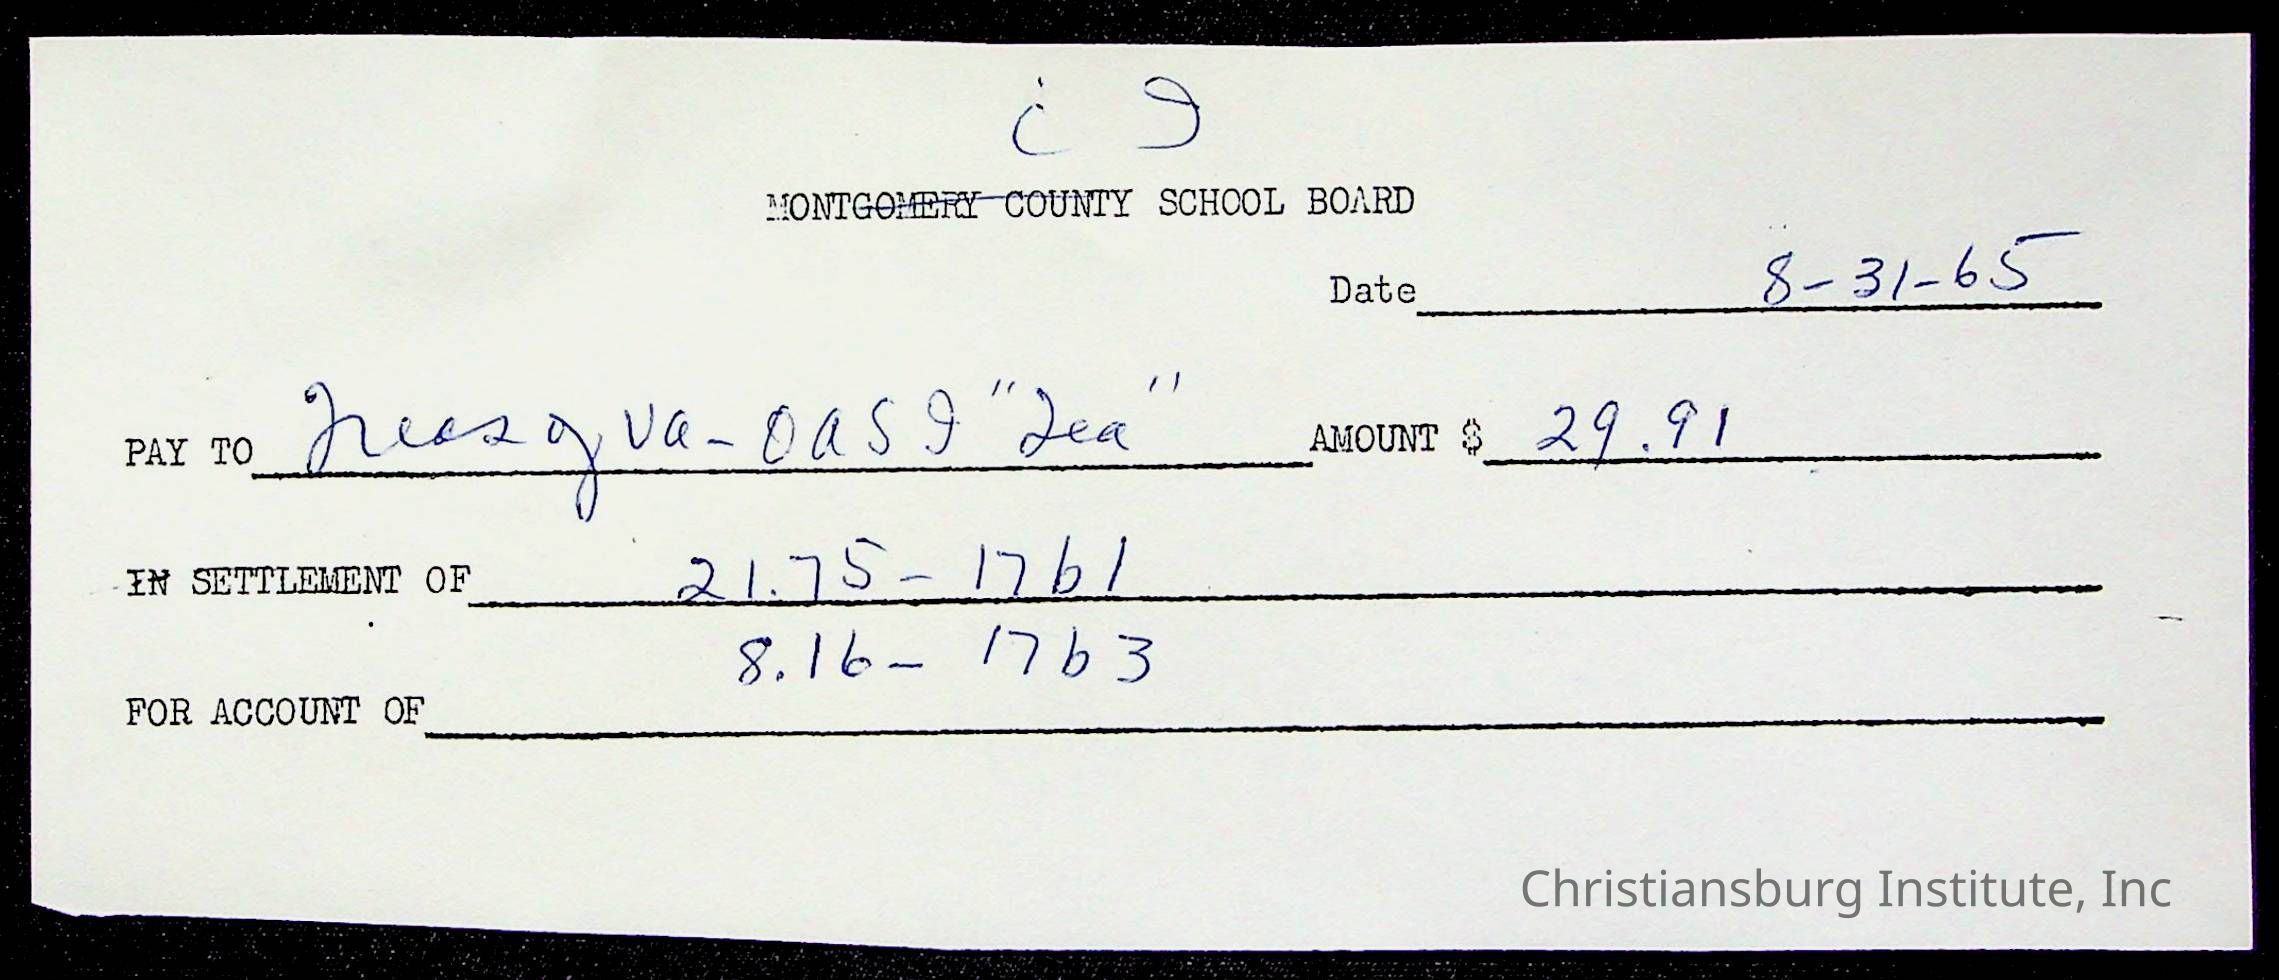 C I
MONTGOMERY COUNTY SCHOOL BOARD
Date 8-31-65
PAY TO Treas of Va - OASI "Tea" AMOUNT $ 29.91
IN SETTLEMENT OF 21.75 - 1761
8.16 - 1763
FOR ACCOUNT OF
Christiansburg Institute, Inc